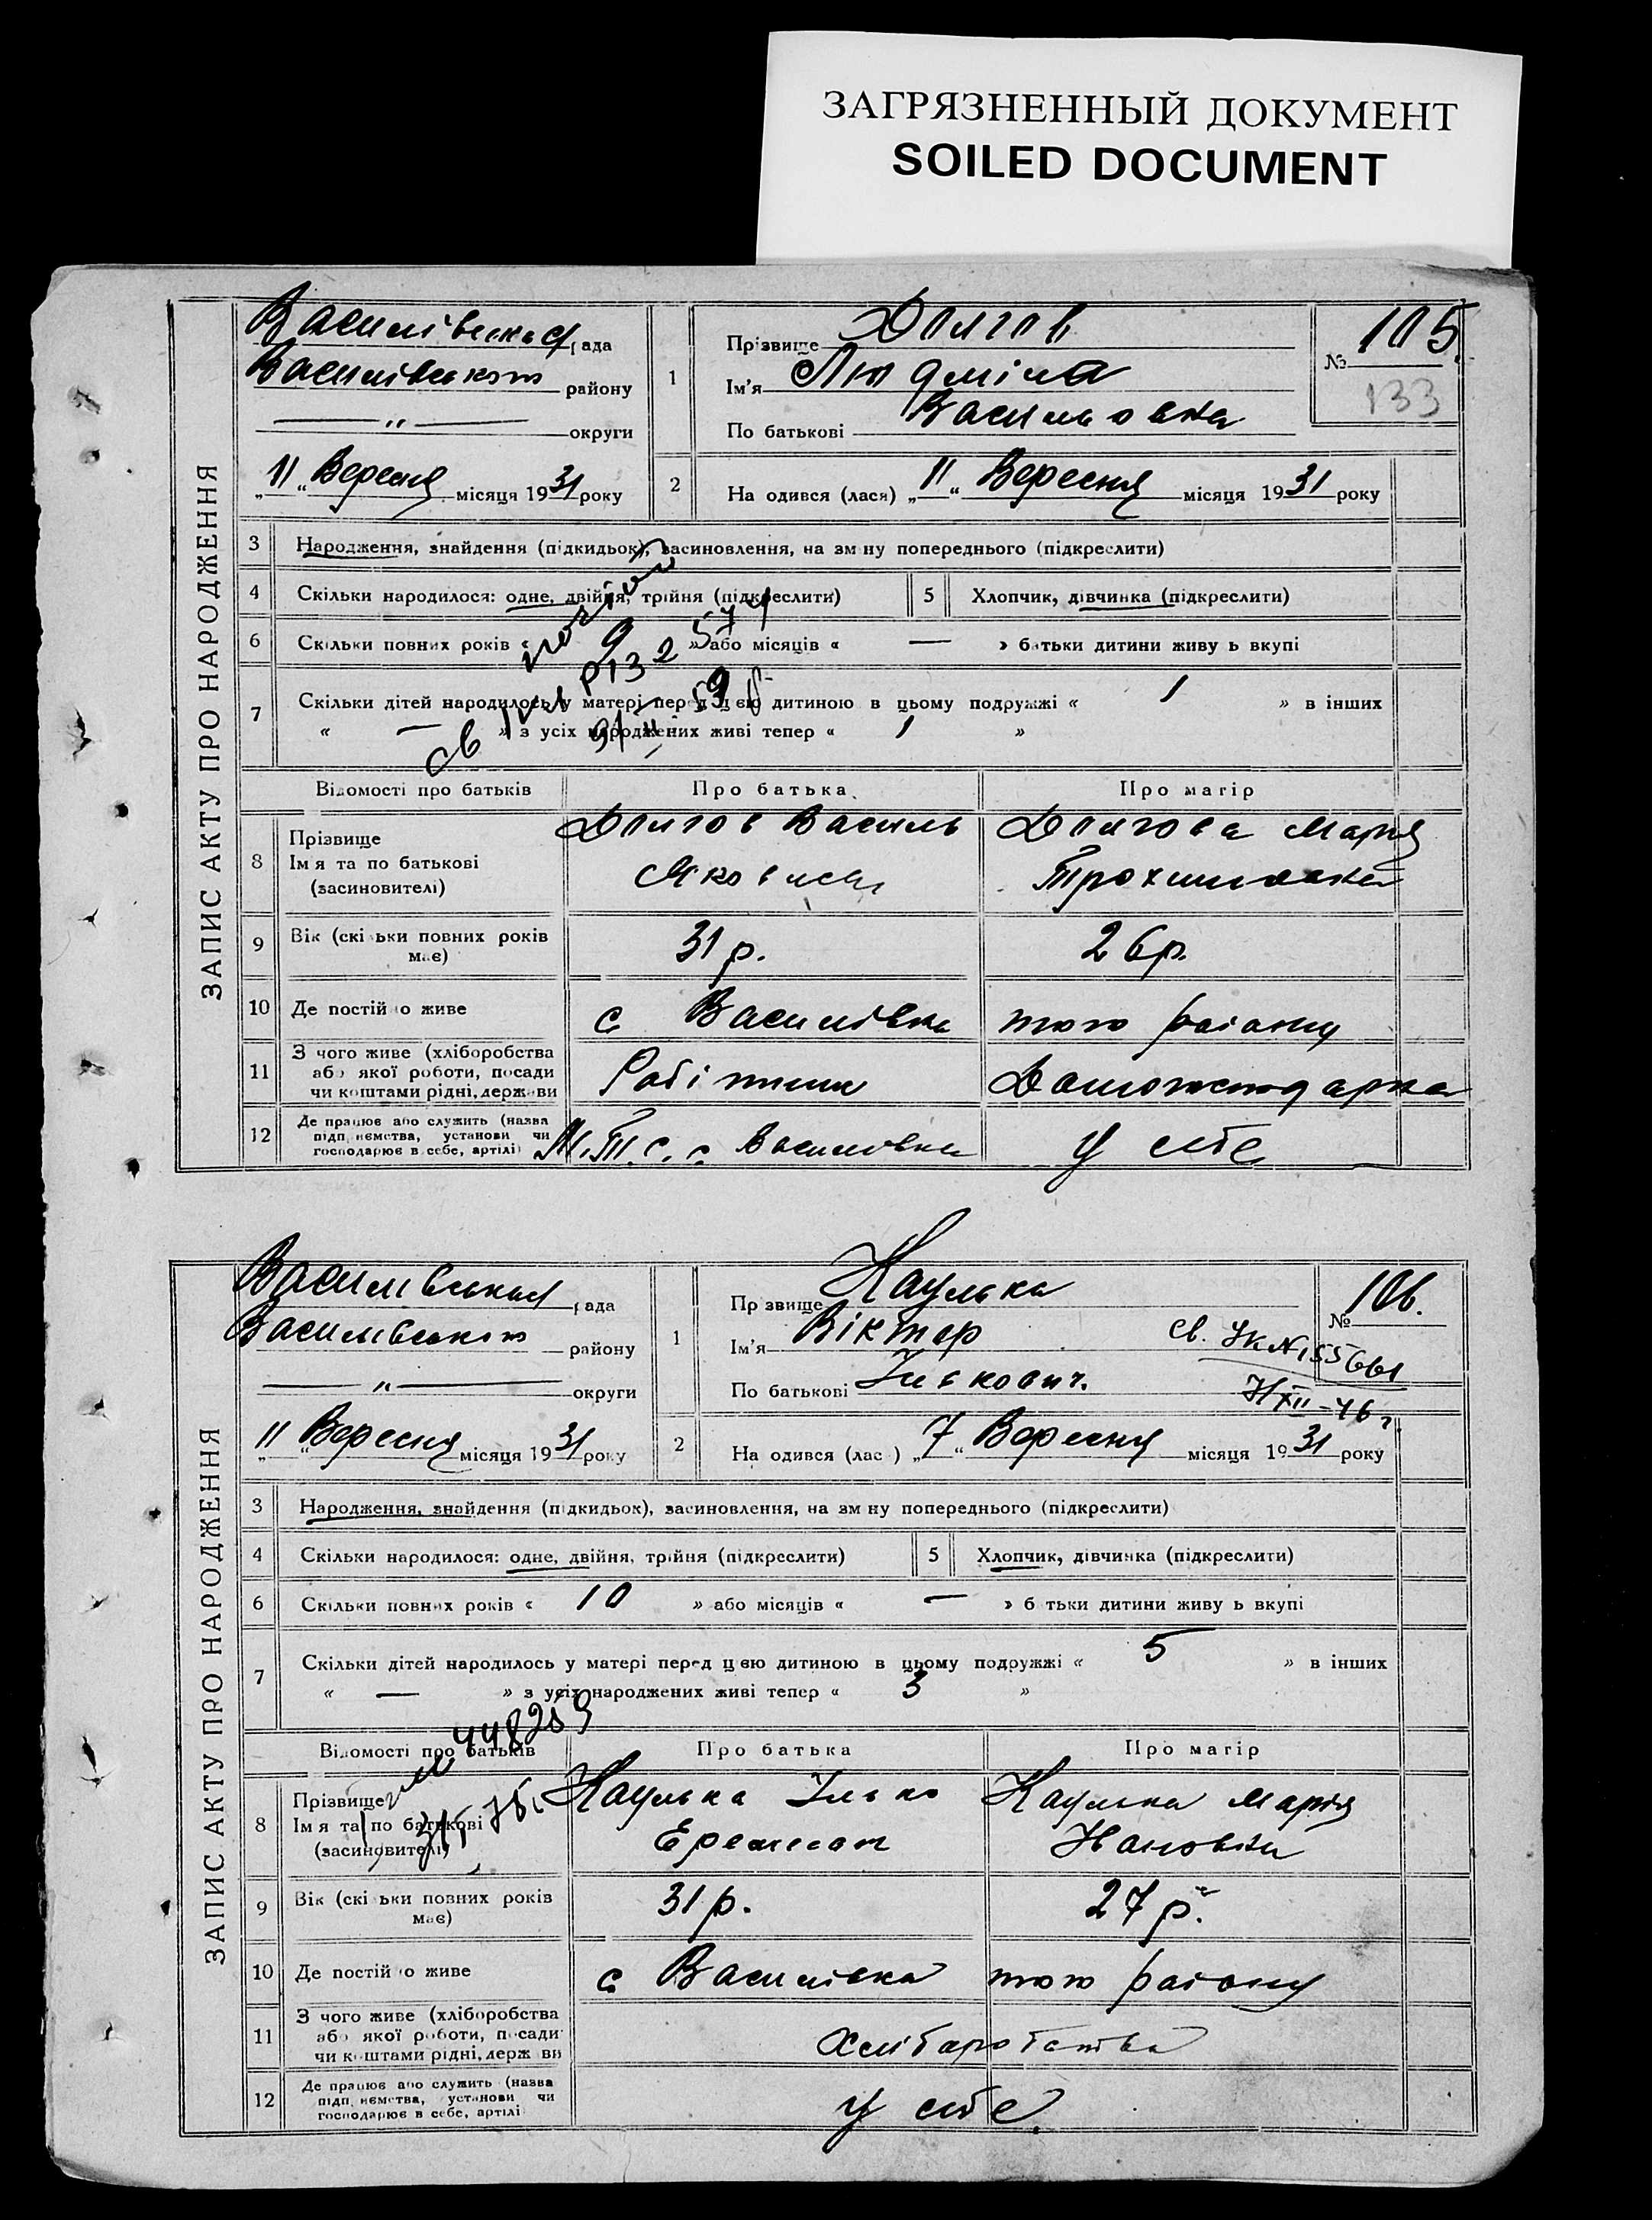 ЗАГРЯЗНЕННЫЙ ДОКУМЕНТ
SOILED DOCUMENT
ЗАПИС АКТУ ПРО НАРОДЖЕННЯ
Василівська рада
Василівського району
— " — округи
„11“ Вересня місяця 1931 року
1
Прізвище Долгов
Ім'я Людміла
По батькові Васильовна
№ 105.
133
2
На одився (лася) „11“ Вересня місяця 1931 року
3 Народження, знайдення (підкидьок), засиновлення, на зм ну попереднього (підкреслити)
4 Скільки народилося: одне, двійня, трійня (підкреслити)
5 Хлопчик, дівчинка (підкреслити)
6 Скільки повних років « 9 » або місяців « — » батьки дитини живу ь вкупі
7 Скільки дітей народилось у матері перед цією дитиною в цьому подружжі « 1 » в інших
« — » з усіх народжених живі тепер « 1 »
Відомості про батьків Про батька Про матір
8 Прізвище
Ім я та по батькові
(засиновителі)
Долгов Василь
Яковлев
Долгова Марія
Трохимовна
9 Вік (скі ьки повних років має) 31 р. 26 р.
10 Де постій о живе с. Василівка того району
11 З чого живе (хліборобства
або якої роботи, посади
чи коштами рідні, держави
Робітник Домогосподарка
12 Де працює або служить (назва
підп иємства, установи чи
господарює в себе, артілі)
М.Т.С. с. Василовка у себе
ЗАПИС АКТУ ПРО НАРОДЖЕННЯ
Василівська рада
Василівського району
— " — округи
„11“ Вересня місяця 1931 року
1
Пр звище Каулька
Ім'я Віктор
По батькові Ількович.
№ 106.
св.
XII-46 г.
2
На одився (лас ) „7“ Вересня місяця 1931 року
3 Народження, знайдення (підкидьок), засиновлення, на зм ну попереднього (підкреслити)
4 Скільки народилося: одне, двійня, трійня (підкреслити)
5 Хлопчик, дівчинка (підкреслити)
6 Скільки повних років « 10 » або місяців « — » б тьки дитини живу ь вкупі
7 Скільки дітей народилось у матері перед цією дитиною в цьому подружжі « 5 » в інших
« — » з усіх народжених живі тепер « 3 »
448259
Відомості про батьків Про батька Про матір
8 Прізвище
Ім я та по батькові
(засиновителі)
Каулька Ілько
Каулька Марія
Івановна
9 Вік (скі ьки повних років має) 31 р. 27 р.
10 Де постій о живе с. Василівка того району
11 З чого живе (хліборобства
або якої роботи, посади
чи коштами рідні, держ ви
Хліборобства
12 Де працює або служить (назва
підп иємства, установи чи
господарює в себе, артілі
у себе